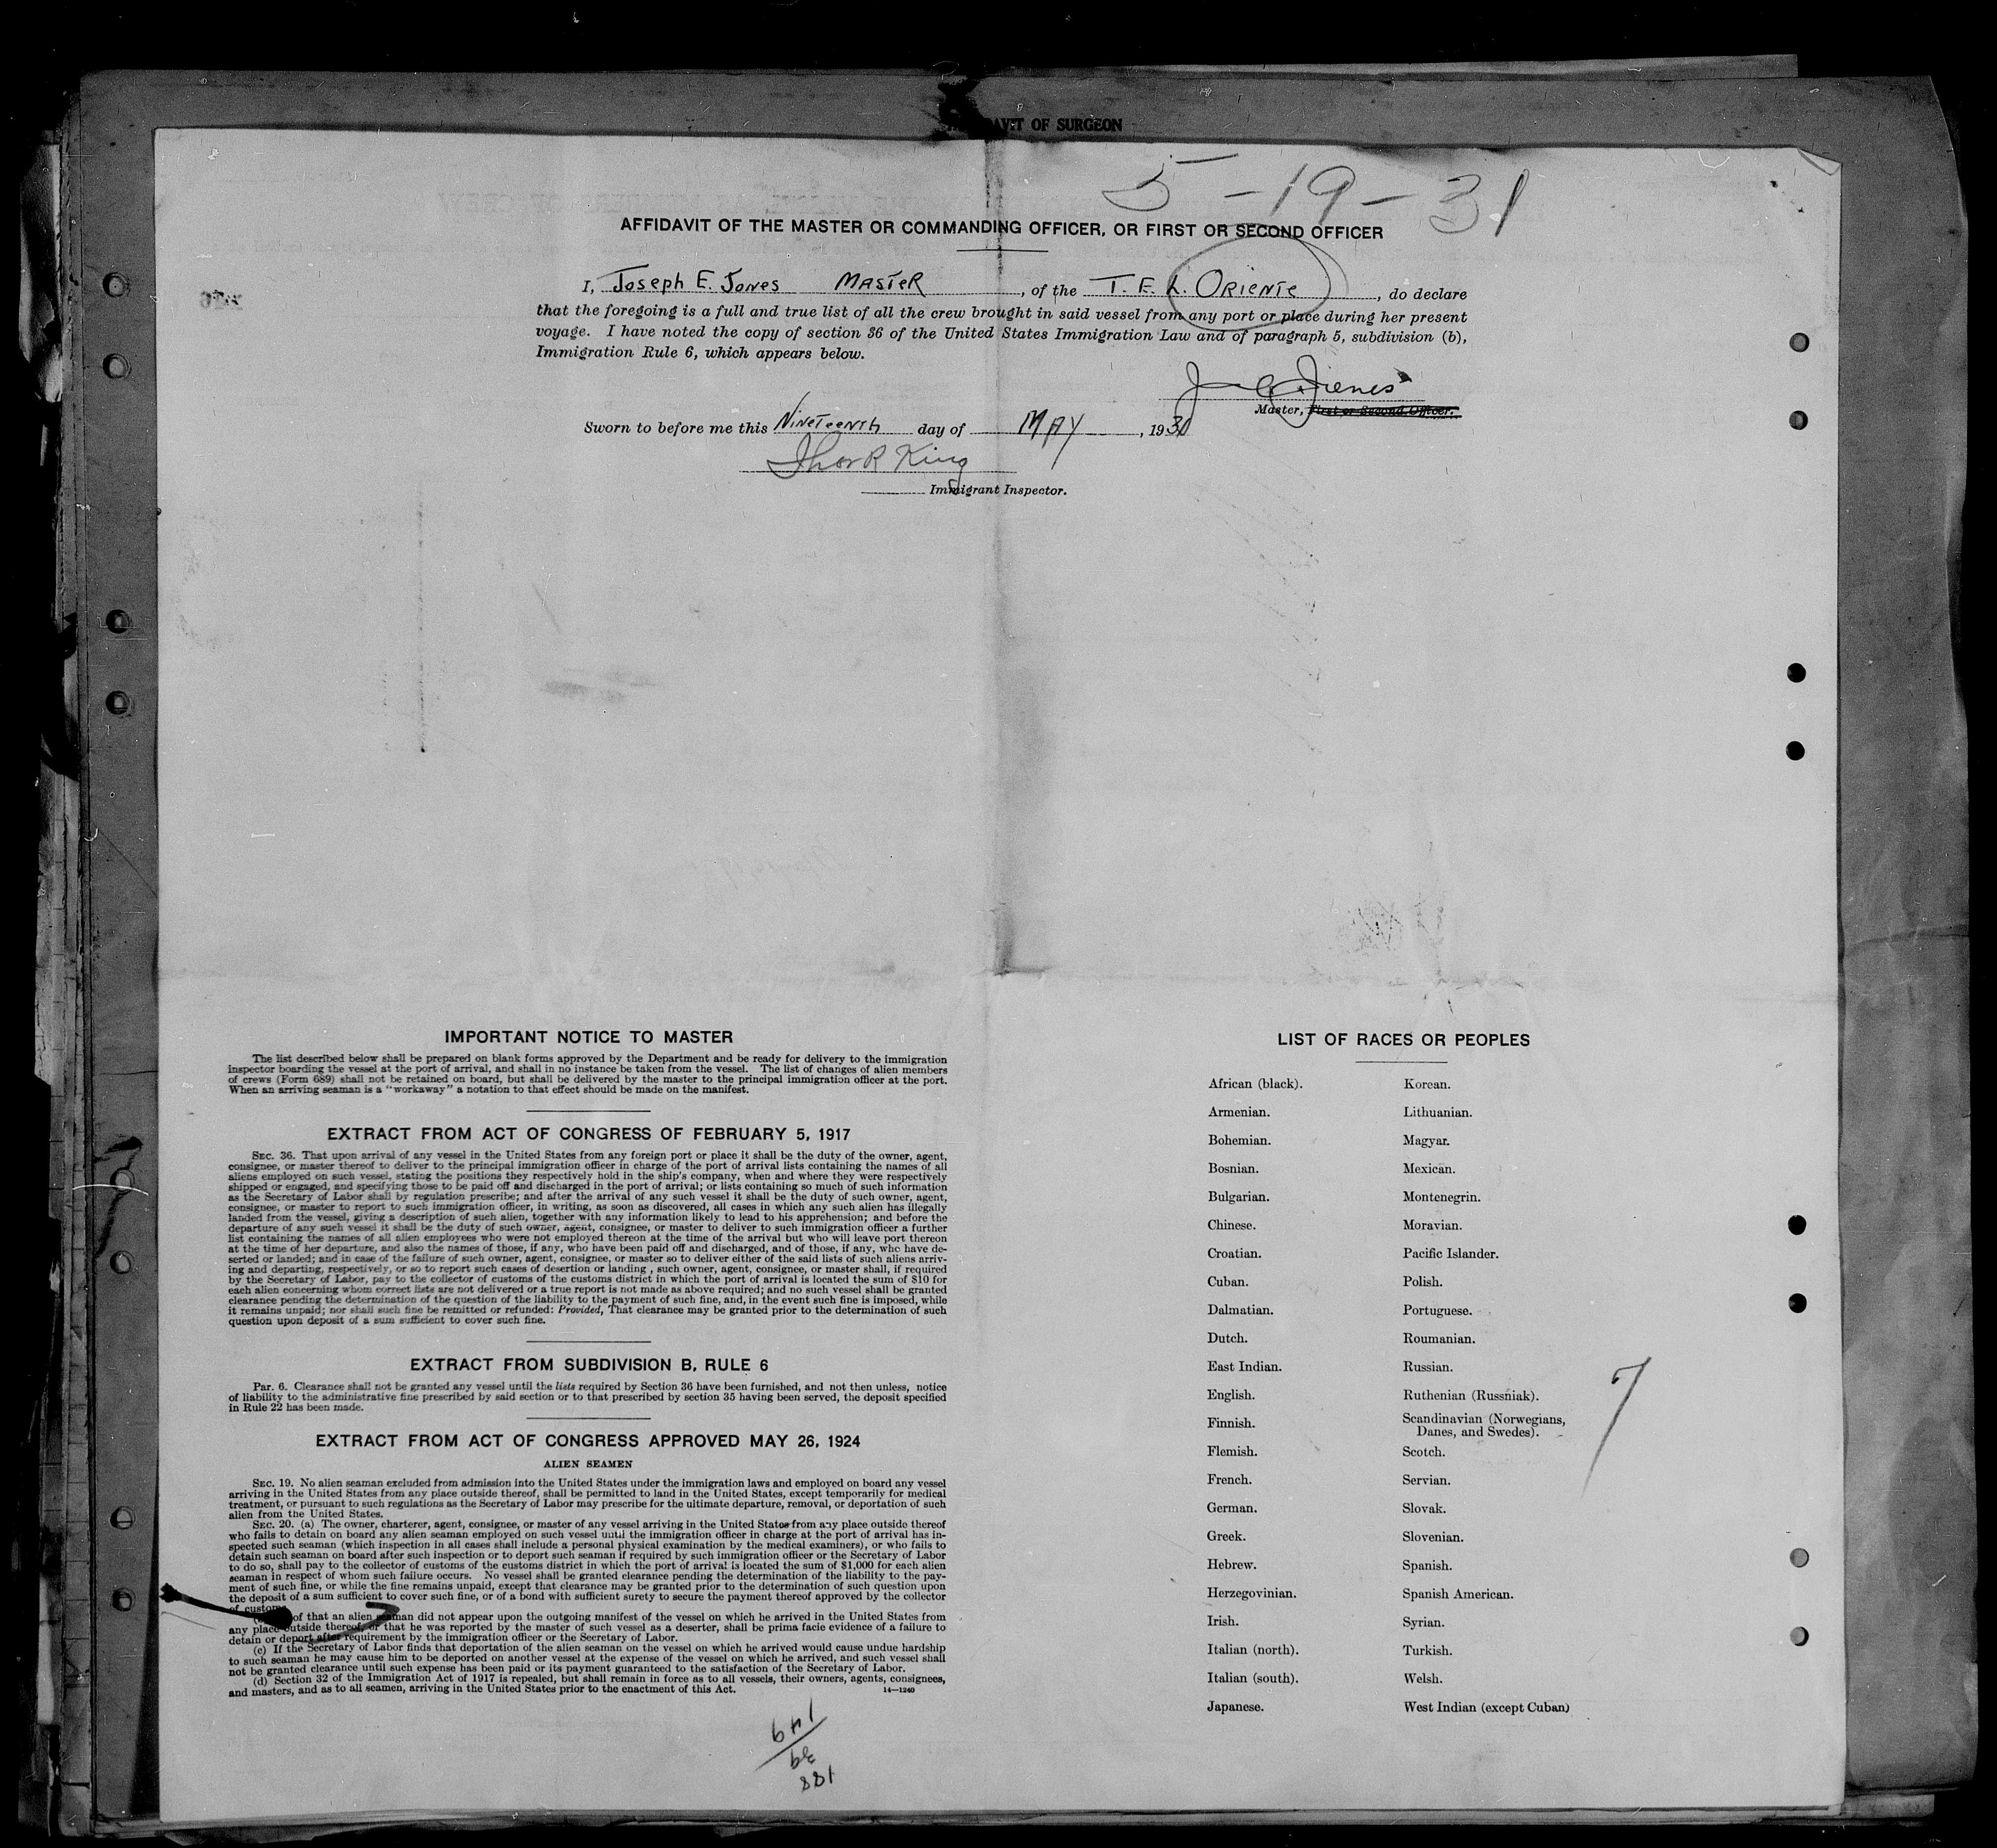 OF SURGEON
5-19-31
AFFIDAVIT OF THE MASTER OR COMMANDING OFFICER, OR FIRST OR SECOND OFFICER
I, Joseph E. Jones MASTER, of the T. E. L. ORIENTE, do declare
that the foregoing is a full and true list of all the crew brought in said vessel from any port or place during her present
voyage. I have noted the copy of section 36 of the United States Immigration Law and of paragraph 5, subdivision (b),
Immigration Rule 6, which appears below.
Master, First or Second Officer.
Sworn to before me this Nineteenth day of MAY, 1931
King
Immigrant Inspector.
IMPORTANT NOTICE TO MASTER
The list described below shall be prepared on blank forms approved by the Department and be ready for delivery to the immigration
inspector boarding the vessel at the port of arrival, and shall in no instance be taken from the vessel. The list of changes of alien members
of crews (Form 689) shall not be retained on board, but shall be delivered by the master to the principal immigration officer at the port.
When an arriving seaman is a "workaway" a notation to that effect should be made on the manifest.
EXTRACT FROM ACT OF CONGRESS OF FEBRUARY 5, 1917
SEC. 36. That upon arrival of any vessel in the United States from any foreign port or place it shall be the duty of the owner, agent,
consignee, or master thereof to deliver to the principal immigration officer in charge of the port of arrival lists containing the names of all
aliens employed on such vessel, stating the positions they respectively hold in the ship's company, when and where they were respectively
shipped or engaged, and specifying those to be paid off and discharged in the port of arrival; or lists containing so much of such information
as the Secretary of Labor shall by regulation prescribe; and after the arrival of any such vessel it shall be the duty of such owner, agent,
consignee, or master to report to such immigration officer, in writing, as soon as discovered, all cases in which any such alien has illegally
landed from the vessel, giving a description of such alien, together with any information likely to lead to his apprehension; and before the
departure of any such vessel it shall be the duty of such owner, agent, consignee, or master to deliver to such immigration officer a further
list containing the names of all alien employees who were not employed thereon at the time of the arrival but who will leave port thereon
at the time of her departure, and also the names of those, if any, who have been paid off and discharged, and of those, if any, who have de-
serted or landed; and in case of the failure of such owner, agent, consignee, or master so to deliver either of the said lists of such aliens arriv-
ing and departing, respectively, or so to report such cases of desertion or landing , such owner, agent, consignee, or master shall, if required
by the Secretary of Labor, pay to the collector of customs of the customs district in which the port of arrival is located the sum of $10 for
each alien concerning whom correct lists are not delivered or a true report is not made as above required; and no such vessel shall be granted
clearance pending the determination of the question of the liability to the payment of such fine, and, in the event such fine is imposed, while
it remains unpaid; nor shall such fine be remitted or refunded: Provided, That clearance may be granted prior to the determination of such
question upon deposit of a sum sufficient to cover such fine.
EXTRACT FROM SUBDIVISION B, RULE 6
Par. 6. Clearance shall not be granted any vessel until the lists required by Section 36 have been furnished, and not then unless, notice
of liability to the administrative fine prescribed by said section or to that prescribed by section 35 having been served, the deposit specified
in Rule 22 has been made.
EXTRACT FROM ACT OF CONGRESS APPROVED MAY 26, 1924
ALIEN SEAMEN
SEC. 19. No alien seaman excluded from admission into the United States under the immigration laws and employed on board any vessel
arriving in the United States from any place outside thereof, shall be permitted to land in the United States, except temporarily for medical
treatment, or pursuant to such regulations as the Secretary of Labor may prescribe for the ultimate departure, removal, or deportation of such
alien from the United States.
SEC. 20. (a) The owner, charterer, agent, consignee, or master of any vessel arriving in the United States from any place outside thereof
who fails to detain on board any alien seaman employed on such vessel until the immigration officer in charge at the port of arrival has in-
spected such seaman (which inspection in all cases shall include a personal physical examination by the medical examiners), or who fails to
detain such seaman on board after such inspection or to deport such seaman if required by such immigration officer or the Secretary of Labor
to do so, shall pay to the collector of customs of the customs district in which the port of arrival is located the sum of $1,000 for each alien
seaman in respect of whom such failure occurs. No vessel shall be granted clearance pending the determination of the liability to the pay-
ment of such fine, or while the fine remains unpaid, except that clearance may be granted prior to the determination of such question upon
the deposit of a sum sufficient to cover such fine, or of a bond with sufficient surety to secure the payment thereof approved by the collector
of customs.
of that an alien seaman did not appear upon the outgoing manifest of the vessel on which he arrived in the United States from
any place outside thereof, or that he was reported by the master of such vessel as a deserter, shall be prima facie evidence of a failure to
detain or deport after requirement by the immigration officer or the Secretary of Labor.
(c) If the Secretary of Labor finds that deportation of the alien seaman on the vessel on which he arrived would cause undue hardship
to such seaman he may cause him to be deported on another vessel at the expense of the vessel on which he arrived, and such vessel shall
not be granted clearance until such expense has been paid or its payment guaranteed to the satisfaction of the Secretary of Labor.
(d) Section 32 of the Immigration Act of 1917 is repealed, but shall remain in force as to all vessels, their owners, agents, consignees,
and masters, and as to all seamen, arriving in the United States prior to the enactment of this Act.
14—1240
149
39
188
LIST OF RACES OR PEOPLES
African (black). Korean.
Armenian. Lithuanian.
Bohemian. Magyar.
Bosnian. Mexican.
Bulgarian. Montenegrin.
Chinese. Moravian.
Croatian. Pacific Islander.
Cuban. Polish.
Dalmatian. Portuguese.
Dutch. Roumanian.
East Indian. Russian.
English. Ruthenian (Russniak).
Finnish. Scandinavian (Norwegians,
Danes, and Swedes).
Flemish. Scotch.
French. Servian.
German. Slovak.
Greek. Slovenian.
Hebrew. Spanish.
Herzegovinian. Spanish American.
Irish. Syrian.
Italian (north). Turkish.
Italian (south). Welsh.
Japanese. West Indian (except Cuban)
7